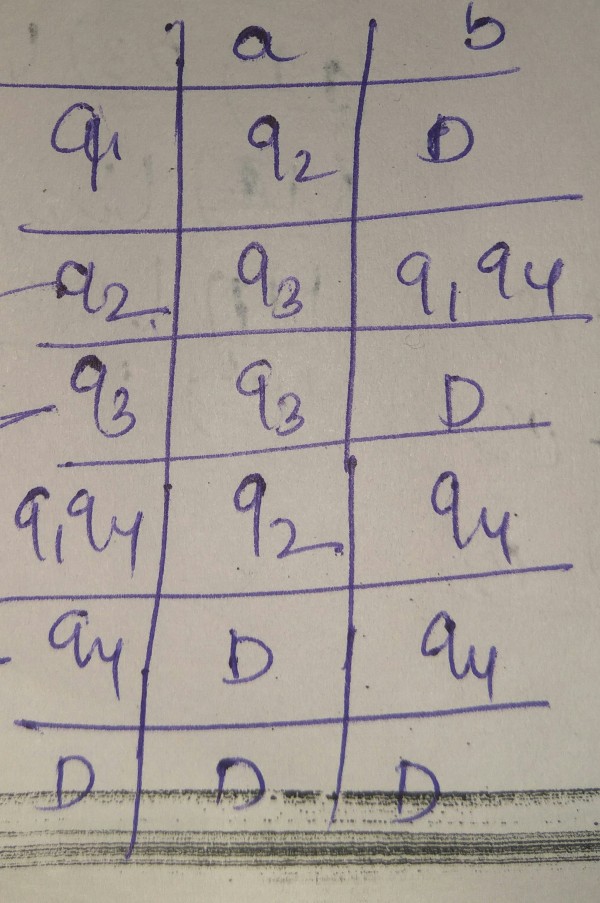 a b
q1 q2 D
q2 q3 q1q4
q3 q3 D
q1q4 q2 q4
q4 D q4
D D D